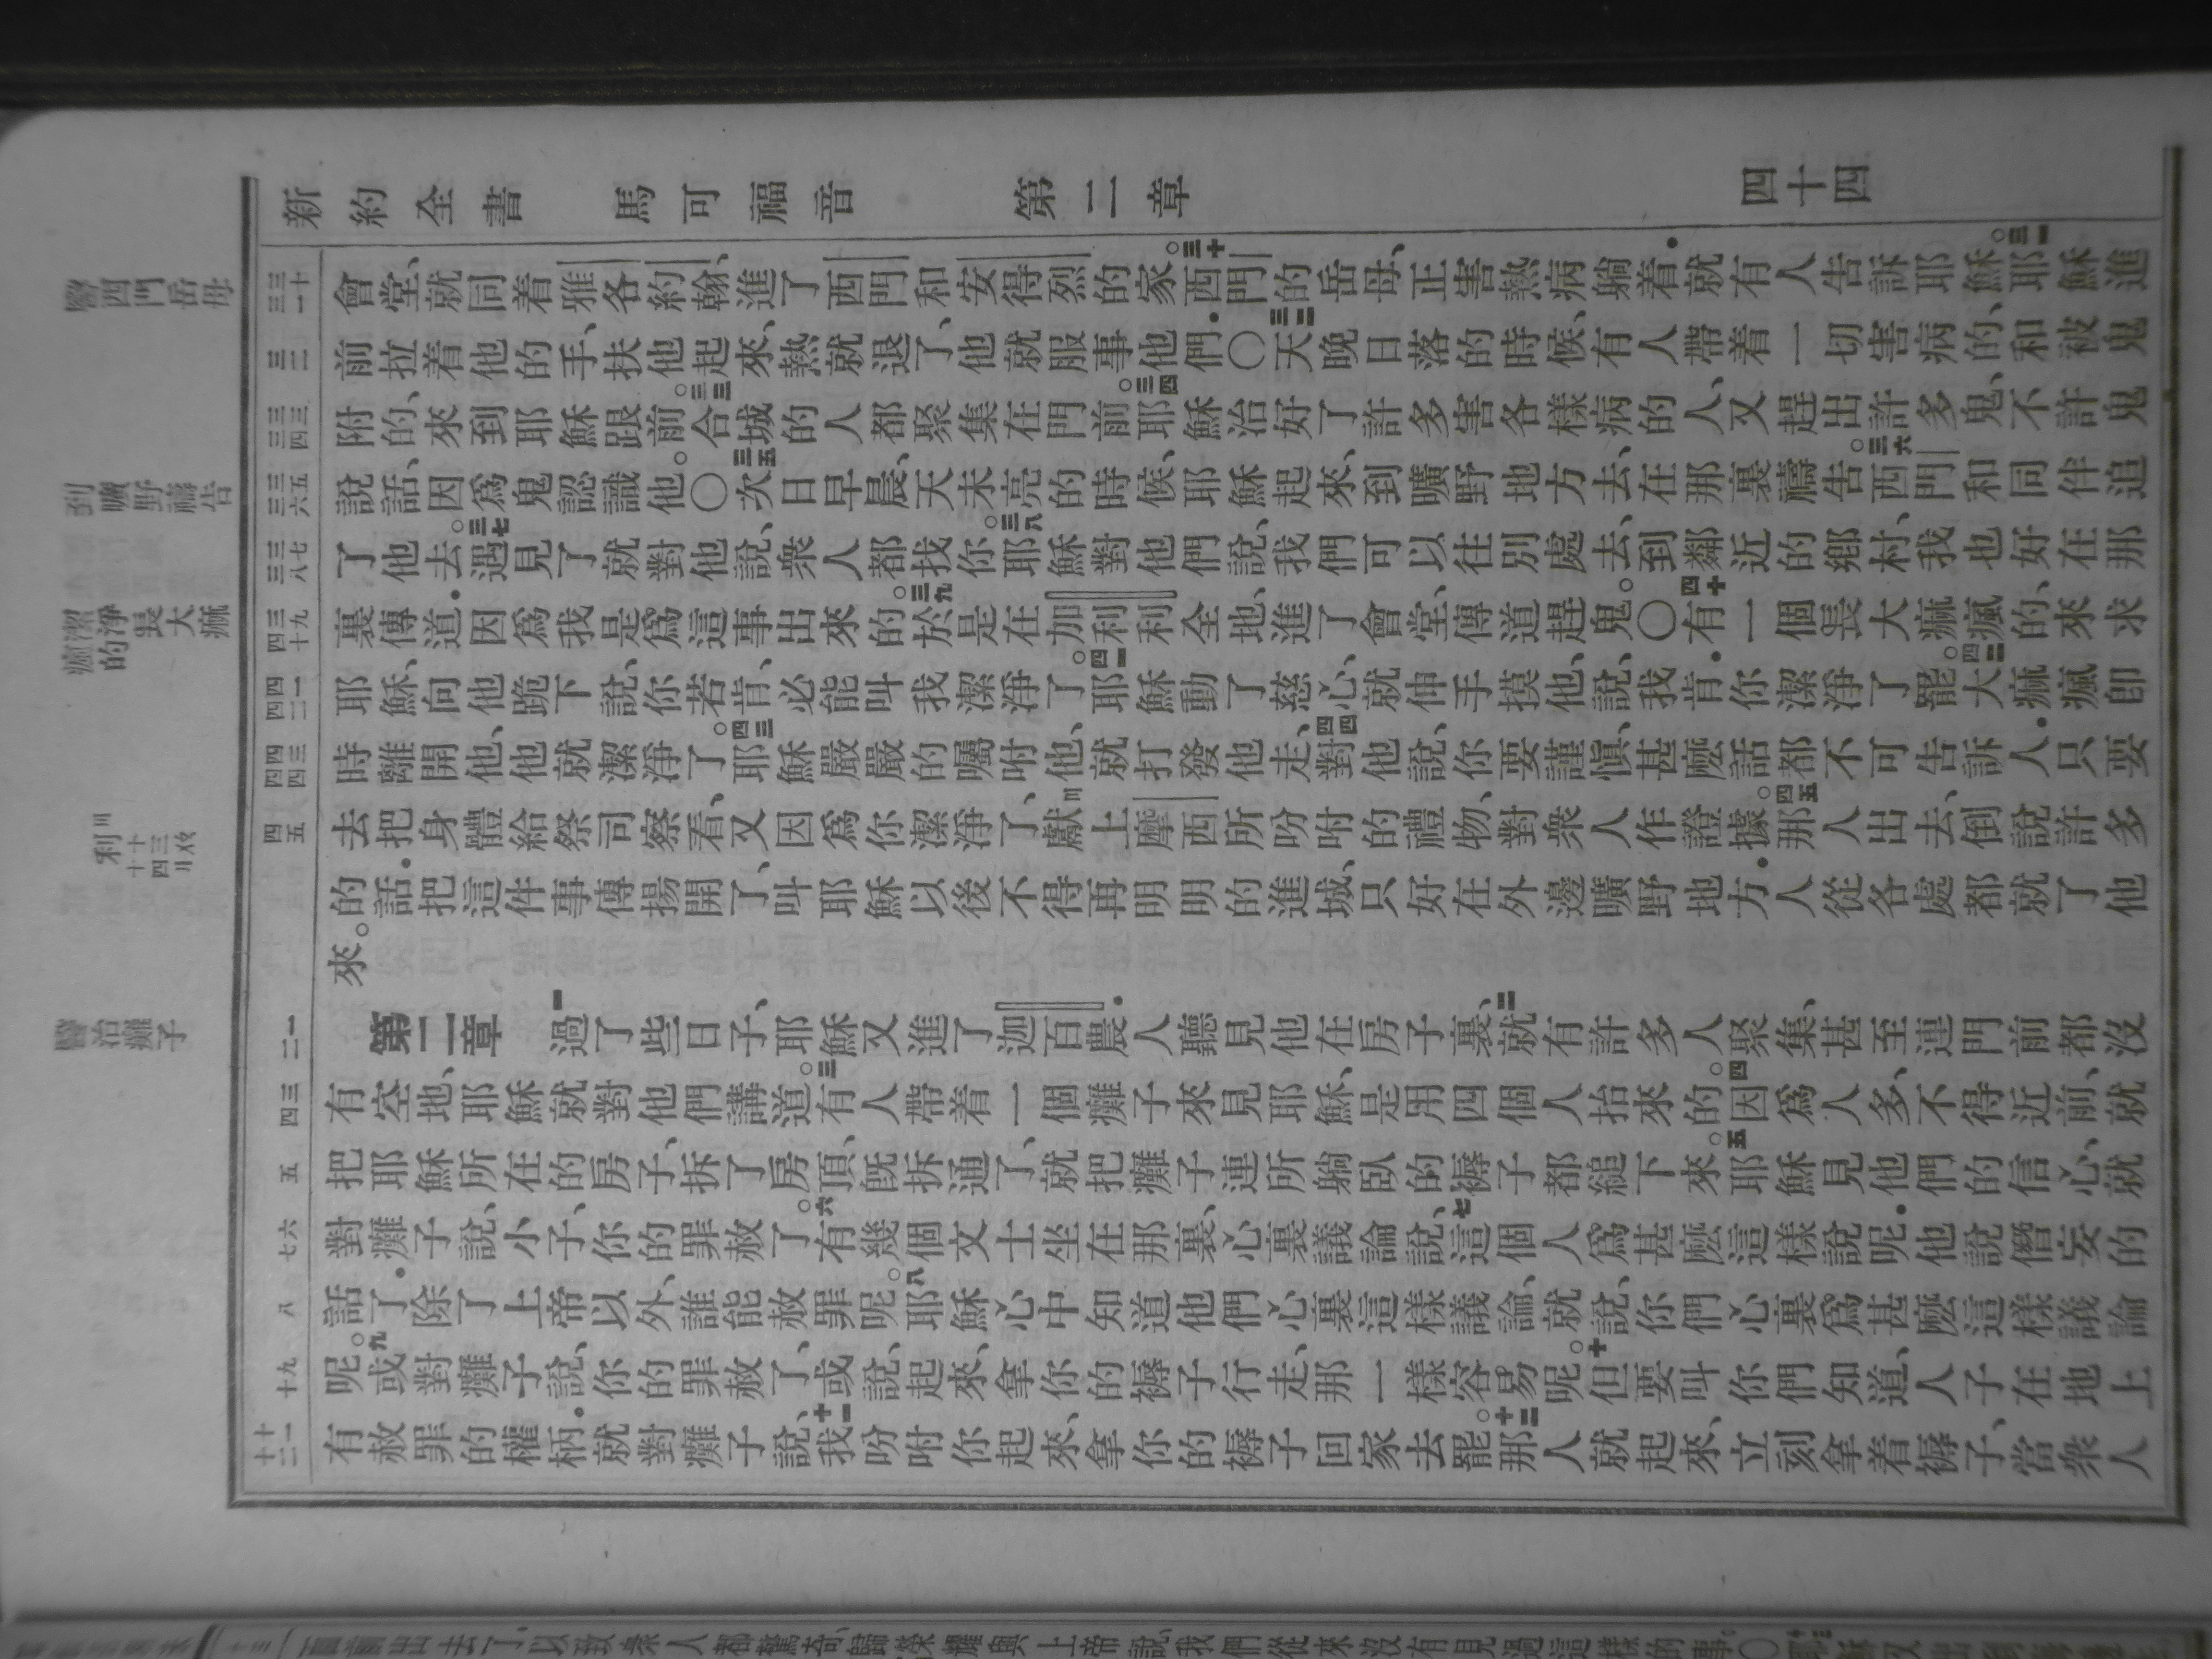 新約全書 馬可福音 第二章 四十四
醫西門岳母
到曠野禱告
潔淨長大痲瘋的
利十四
醫治癱子
三十一
會堂、就同着雅各約翰、進了西門和安得烈的家。三十西門的岳母、正害熱病躺着.就有人告訴耶穌。三一耶穌進
三二
前拉着他的手、扶他起來、熱就退了、他就服事他們.〇三二天晚日落的時候、有人帶着一切害病的、和被鬼
三三 三四
附的、來到耶穌跟前。三三合城的人都聚集在門前。三四耶穌治好了許多害各樣病的人、又趕出許多鬼、不許鬼
三五 三六
說話、因爲鬼認識他。〇三五次日早晨、天未亮的時候、耶穌起來、到曠野地方去、在那裏禱告。三六西門和同伴追
三七 三八
了他去。三七遇見了就對他說、衆人都找你。三八耶穌對他們說、我們可以往別處去、到鄰近的鄉村、我也好在那
三九 四十
裏傳道.因爲我是爲這事出來的。三九於是在加利利全地、進了會堂、傳道趕鬼。〇四十有一個長大痲瘋的、來求
四一 四二
耶穌、向他跪下說、你若肯、必能叫我潔淨了。四一耶穌動了慈心、就伸手摸他、說、我肯.你潔淨了罷。四二大痲瘋卽
四三 四四
時離開他、他就潔淨了。四三耶穌嚴嚴的囑咐他、就打發他走、四四對他說、你要謹愼、甚麽話都不可告訴人.只要
四五
去把身體給祭司察看、又因爲你潔淨了、獻上摩西所吩咐的禮物、對衆人作證據。四五那人出去、倒說許多
的話.把這件事傳揚開了、叫耶穌以後不得再明明的進城、只好在外邊曠野地方.人從各處都就了他
來。
一 二
第二章 一過了些日子、耶穌又進了迦百農.人聽見他在房子裏、二就有許多人聚集、甚至連門前都沒
三 四
有空地、耶穌就對他們講道。三有人帶着一個癱子來見耶穌、是用四個人抬來的。四因爲人多、不得近前、就
五
把耶穌所在的房子、拆了房頂、旣拆通了、就把癱子連所躺臥的褥子都縋下來。五耶穌見他們的信心、就
六 七
對癱子說、小子、你的罪赦了。六有幾個文士坐在那裏、心裏議論說、七這個人爲甚麽這樣說呢.他說僭妄的
八
話了.除了上帝以外、誰能赦罪呢。八耶穌心中知道他們心裏這樣議論、就說、你們心裏爲甚麽這樣議論
九 十
呢。九或對癱子說、你的罪赦了、或說、起來、拿你的褥子行走、那一樣容易呢。十但要叫你們知道、人子在地上
十一 十二
有赦罪的權柄.就對癱子說、十一我吩咐你起來、拿你的褥子回家去罷。十二那人就起來、立刻拿着褥子、當衆人
出去了.以致衆人都驚奇、歸榮耀與上帝說、我們從來沒有見過這樣的事。〇